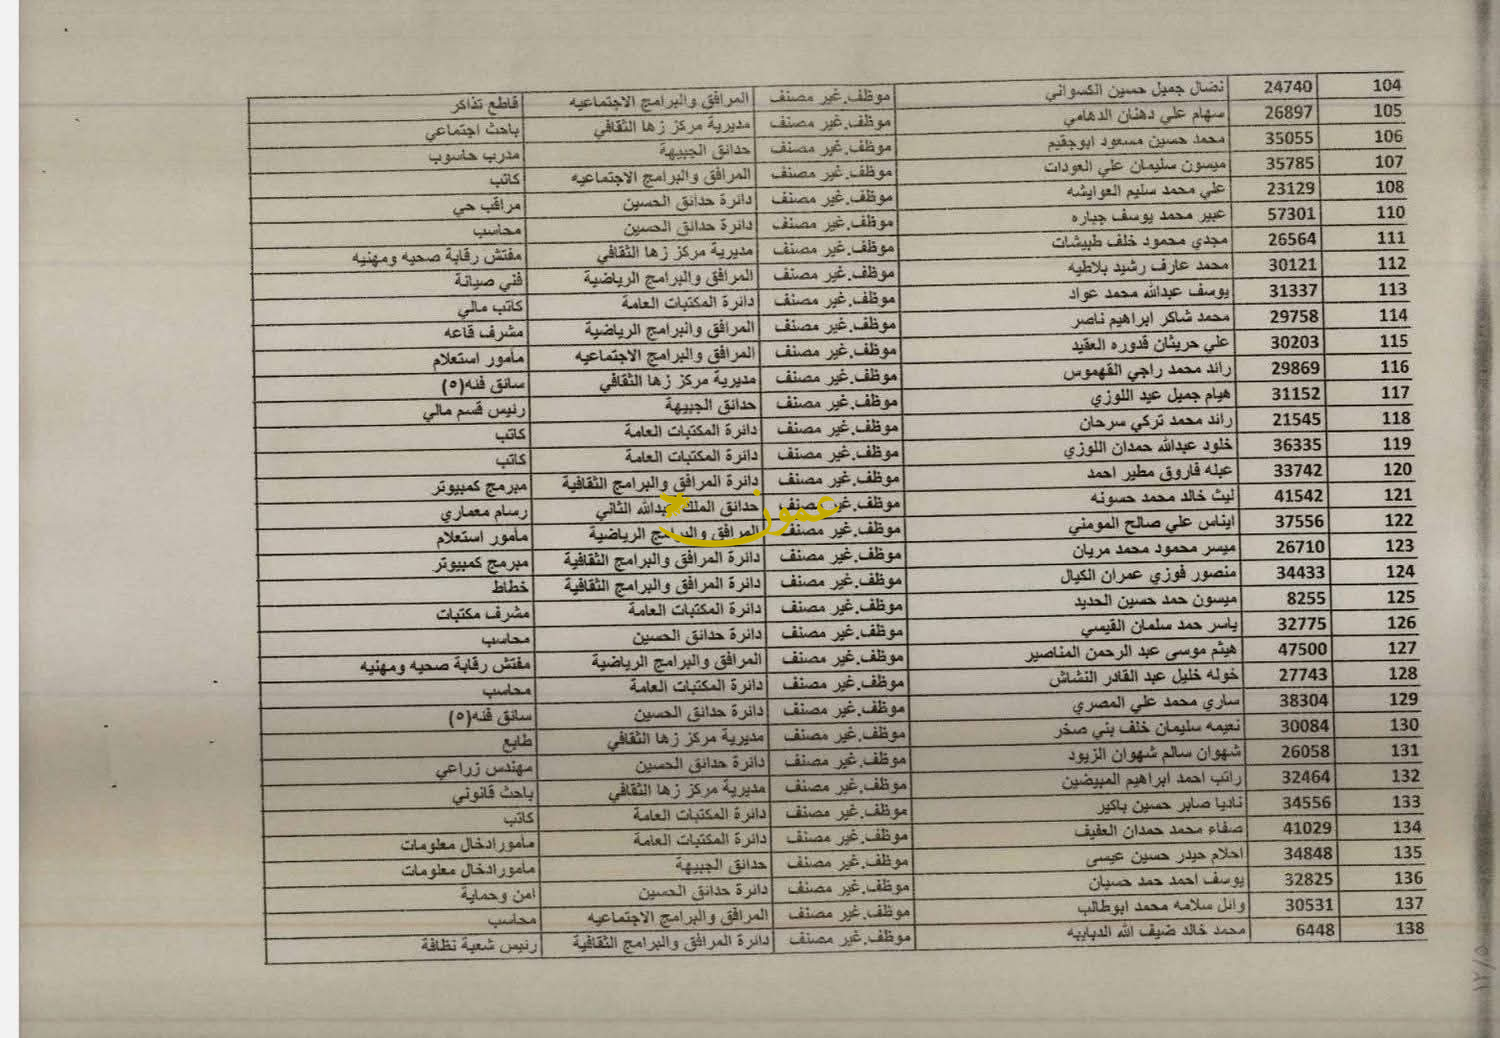 104 24740 نضال جميل حسين الكسواني موظف.غير مصنف المرافق والبرامج الاجتماعيه قاطع تذاكر
105 26897 سهام علي دهنان الدهامي موظف.غير مصنف مديرية مركز زها الثقافي باحث اجتماعي
106 35055 محمد حسين مسعود ابوجقيم موظف.غير مصنف حدائق الجبيهة مدرب حاسوب
107 35785 ميسون سليمان علي العودات موظف.غير مصنف المرافق والبرامج الاجتماعيه كاتب
108 23129 علي محمد سليم العوايشه موظف.غير مصنف دائرة حدائق الحسين مراقب حي
110 57301 عبير محمد يوسف جباره موظف.غير مصنف دائرة حدائق الحسين محاسب
111 26564 مجدي محمود خلف طبيشات موظف.غير مصنف مديرية مركز زها الثقافي مفتش رقابة صحيه ومهنيه
112 30121 محمد عارف رشيد بلاطيه موظف.غير مصنف المرافق والبرامج الرياضية فني صيانة
113 31337 يوسف عبدالله محمد عواد موظف.غير مصنف دائرة المكتبات العامة كاتب مالي
114 29758 محمد شاكر ابراهيم ناصر موظف.غير مصنف المرافق والبرامج الرياضية مشرف قاعه
115 30203 علي حريثان قدوره العقيد موظف.غير مصنف المرافق والبرامج الاجتماعيه مأمور استعلام
116 29869 رائد محمد راجي القهموس موظف.غير مصنف مديرية مركز زها الثقافي سائق فئه(٥)
117 31152 هيام جميل عيد اللوزي موظف.غير مصنف حدائق الجبيهة رئيس قسم مالي
118 21545 رائد محمد تركي سرحان موظف.غير مصنف دائرة المكتبات العامة كاتب
119 36335 خلود عبدالله حمدان اللوزي موظف.غير مصنف دائرة المكتبات العامة كاتب
120 33742 عبله فاروق مطير احمد موظف.غير مصنف دائرة المرافق والبرامج الثقافية مبرمج كمبيوتر
121 41542 ليث خالد محمد حسونه موظف.غير مصنف حدائق الملك عبدالله الثاني رسام معماري
عمون
122 37556 ايناس علي صالح المومني موظف.غير مصنف المرافق والبرامج الرياضية مأمور استعلام
123 26710 ميسر محمود محمد مريان موظف.غير مصنف دائرة المرافق والبرامج الثقافية مبرمج كمبيوتر
124 34433 منصور فوزي عمران الكيال موظف.غير مصنف دائرة المرافق والبرامج الثقافية خطاط
125 8255 ميسون حمد حسين الحديد موظف.غير مصنف دائرة المكتبات العامة مشرف مكتبات
126 32775 ياسر حمد سلمان القيسي موظف.غير مصنف دائرة حدائق الحسين محاسب
127 47500 هيثم موسى عبد الرحمن المناصير موظف.غير مصنف المرافق والبرامج الرياضية مفتش رقابة صحيه ومهنيه
128 27743 خوله خليل عبد القادر النشاش موظف.غير مصنف دائرة المكتبات العامة محاسب
129 38304 ساري محمد علي المصري موظف.غير مصنف دائرة حدائق الحسين سائق فئه(٥)
130 30084 نعيمه سليمان خلف بني صخر موظف.غير مصنف مديرية مركز زها الثقافي طابع
131 26058 شهوان سالم شهوان الزيود موظف.غير مصنف دائرة حدائق الحسين مهندس زراعي
132 32464 راتب احمد ابراهيم المبيضين موظف.غير مصنف مديرية مركز زها الثقافي باحث قانوني
133 34556 ناديا صابر حسين باكير موظف.غير مصنف دائرة المكتبات العامة كاتب
134 41029 صفاء محمد حمدان العفيف موظف.غير مصنف دائرة المكتبات العامة مأمورادخال معلومات
135 34848 احلام حيدر حسين عيسى موظف.غير مصنف حدائق الجبيهة مأمورادخال معلومات
136 32825 يوسف احمد حمد حسبان موظف.غير مصنف دائرة حدائق الحسين امن وحماية
137 30531 وائل سلامه محمد ابوطالب موظف.غير مصنف المرافق والبرامج الاجتماعيه محاسب
138 6448 محمد خالد ضيف الله الدبايبه موظف.غير مصنف دائرة المرافق والبرامج الثقافية رئيس شعبة نظافة
١٢/٥